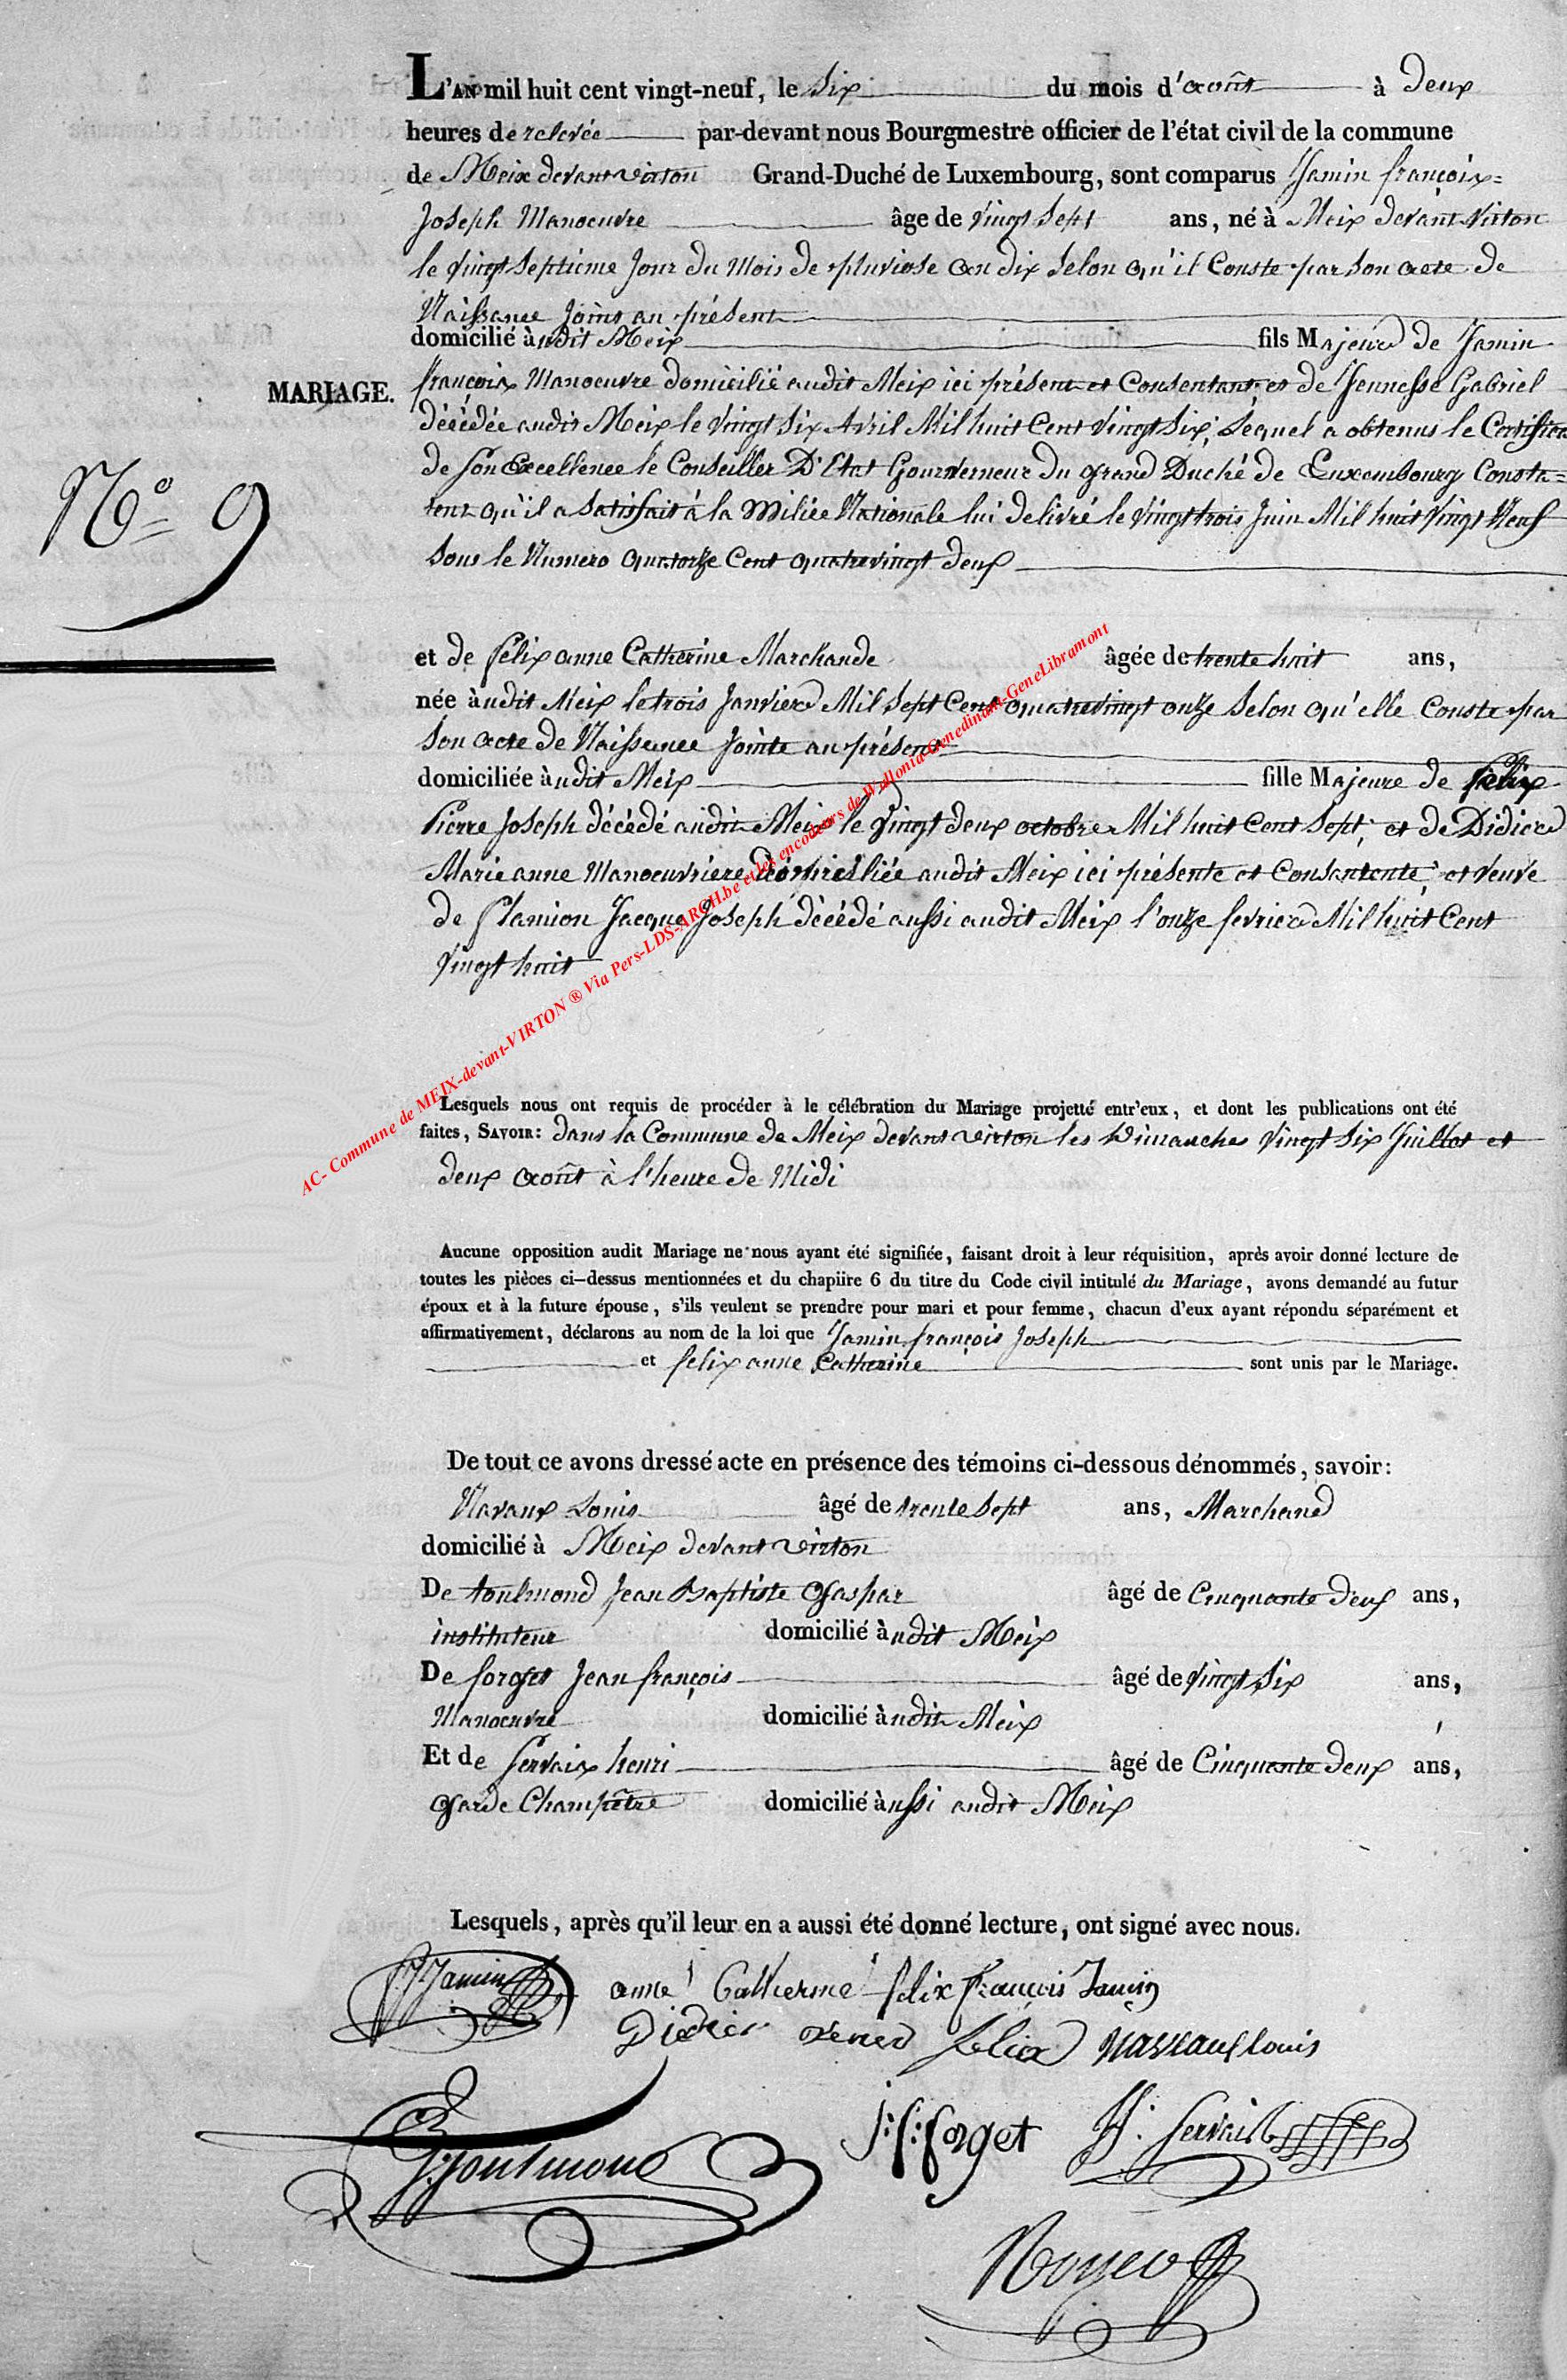 L'AN mil huit cent vingt-neuf, le six du mois d'août à deux
heures de relevée par-devant nous Bourgmestre officier de l'état civil de la commune
de Meix devant virton Grand-Duché de Luxembourg, sont comparus Jamin françois=
Joseph Manoeuvre âge de vingt sept ans, né à Meix devant Virton
le vingt septieme Jour du Mois de pluviose an dix selon qu'il Conste par son acte de
Naissance Joins au présent
domicilié àudit Meix fils Majeur de Jamin
MARIAGE.
françois Manoeuvre domicilié audit Meix ici présent et Consentant, et de Jennesse Gabriel
décédée audit Meix le vingt six Avril Mil huit Cent vingt six, Lequel a obtenus le Certificat
de son Excellence le Conseiller D'Etat Gouverneur du grand Duché de Luxembourg Consta=
tent qu'il a satisfait à la Milice Nationale lui delivré le vingt trois Juin Mil huit vingt Neuf
sous le Numero quatorze Cent quatrevingt deux
N° 9
et de félix anne Catherine Marchande âgée de trente huit ans,
née àudit Meix le trois Janvier Mil Sept Cent quatrevingt onze selon qu'elle Conste par
son acte de Naissance Jointe au présent
domiciliée àudit Meix fille Majeure de felix
Pierre Joseph décédé audit Meix le vingt deux octobre Mil huit Cent sept, et de Didier
Marie anne Manoeuvriere domiciliée audit Meix ici présente et Consentente, et veuve
de Flamion Jacque Joseph décédé aussi audit Meix l'onze fevrier Mil huit Cent
vingt huit
AC- Commune de MEIX-devant-VIRTON ® Via Pers-LDS-ARCH.be et les encodeurs de Wallonia-Genedinant-GeneLibramont
Lesquels nous ont requis de procéder à le célébration du Mariage projetté entr'eux, et dont les publications ont été
faites, SAVOIR: dans la Commune de Meix devant virton les Dimanches vingt six Juillet et
deux août à l'heure de Midi
Aucune opposition audit Mariage ne nous ayant été signifiée, faisant droit à leur réquisition, après avoir donné lecture de
toutes les pièces ci-dessus mentionnées et du chapiire 6 du titre du Code civil intitulé du Mariage, avons demandé au futur
époux et à la future épouse, s'ils veulent se prendre pour mari et pour femme, chacun d'eux ayant répondu séparément et
affirmativement, déclarons au nom de la loi que Jamin françois Joseph
et felix anne Catherine sont unis par le Mariage.
De tout ce avons dressé acte en présence des témoins ci-dessous dénommés, savoir:
Navaux Louis âgé de trente sept ans, Marchand
domicilié à Meix devant virton
De toulmond Jean Baptiste Gaspar âgé de Cinquante deux ans,
instituteur domicilié àudit Meix
De forget Jean françois âgé de vingt six ans,
Manoeuvre domicilié àudit Meix
Et de Servaix henri âgé de Cinquante deux ans,
Garde Champêtre domicilié àussi audit Meix
Lesquels, après qu'il leur en a aussi été donné lecture, ont signé avec nous.
Jamin anne Catherine felix François Jamin
Didier felix navaux louis
Toulmond J:f:forget H. Servais